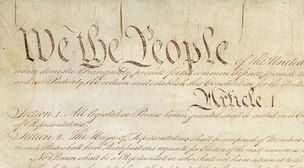 We the People of the United
insure domestic Tranquility, provide for the common defence, promote
and our Posterity, do ordain and establish this Constitution for the United
Article. I.
Section. 1. All legislative Powers herein granted shall be vested in a
Representatives.
Section. 2. The House of Representatives shall be composed of Members
in each State shall have Qualifications requisite for Electors of the most numerous
No Person shall be a Representative who shall not have attained